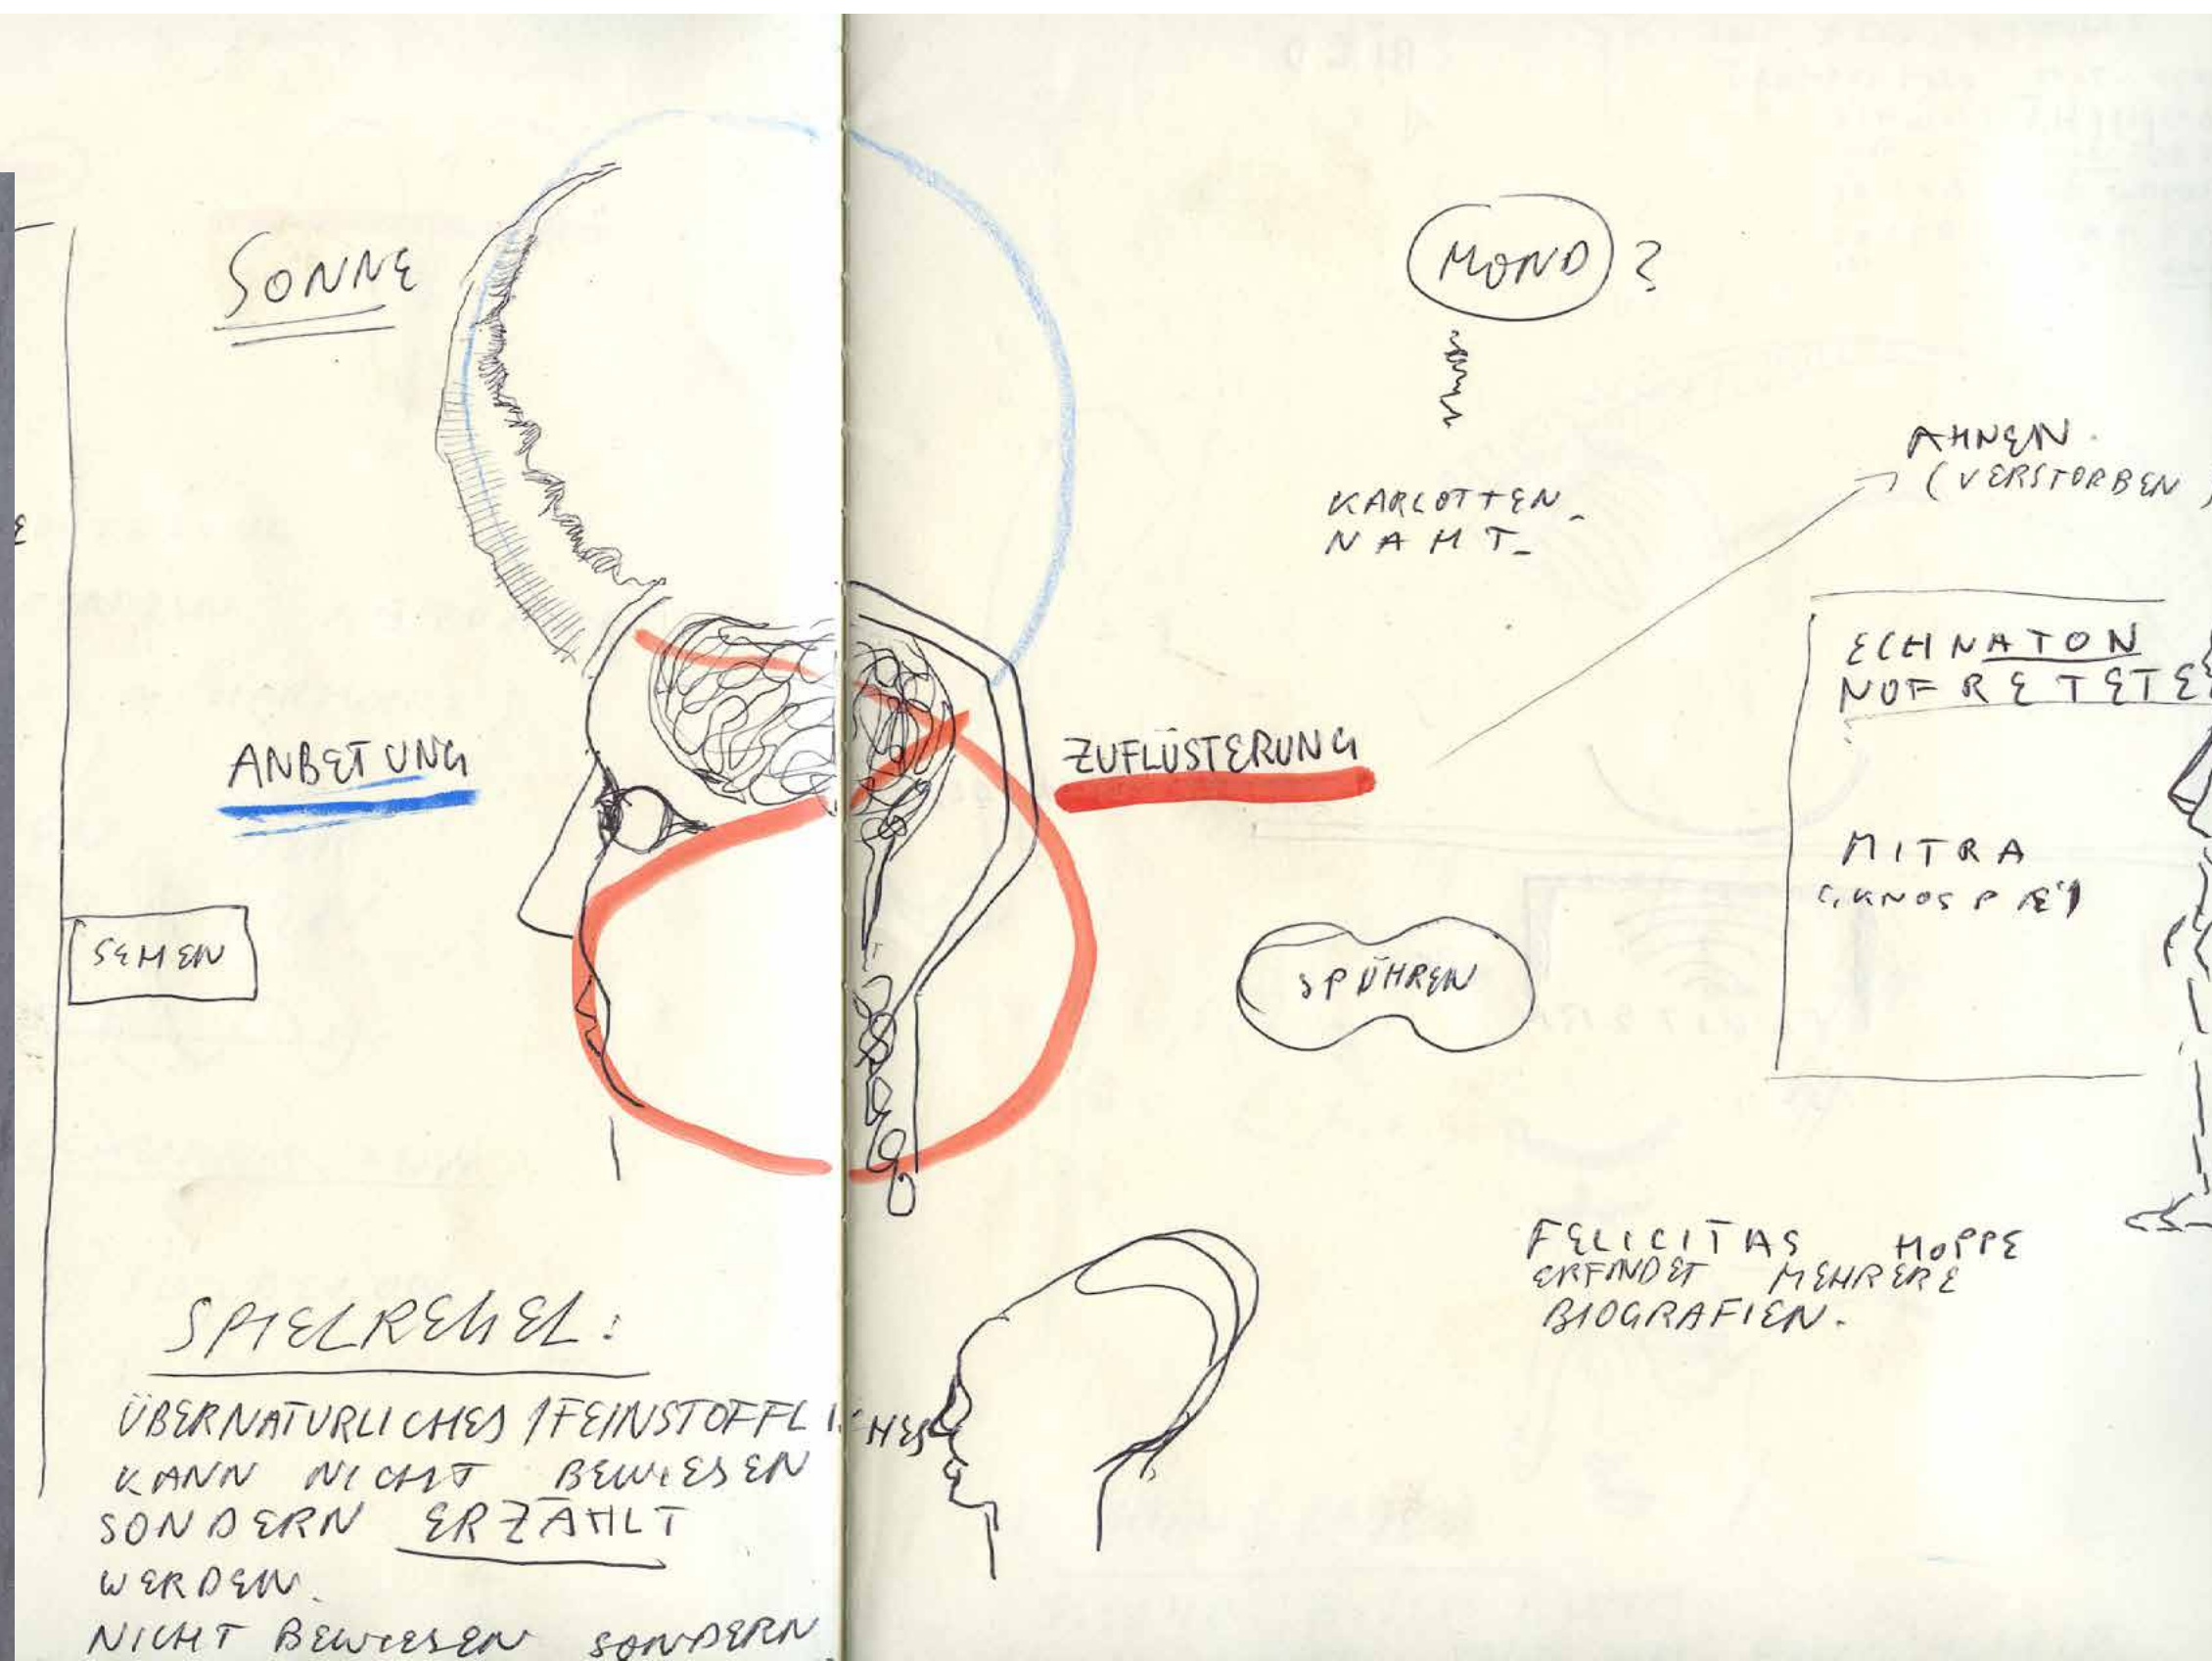 SONNE
ANBETUNG
SEHEN
SPIELREGEL:
ÜBERNATURLICHES / FEINSTOFFLICHES
KANN NICHT BEWIESEN
SONDERN ERZÄHLT
WERDEN.
NICHT BEWIESEN SONDERN
MOND ?
KARLOTTEN-
NAHT-
AHNEN.
(VERSTORBEN)
ZUFLÜSTERUNG
ECHNATON
NOFRETETE
MITRA
SPÜHREN
FELICITAS HOPPE
ERFINDET MEHRERE
BIOGRAFIEN.